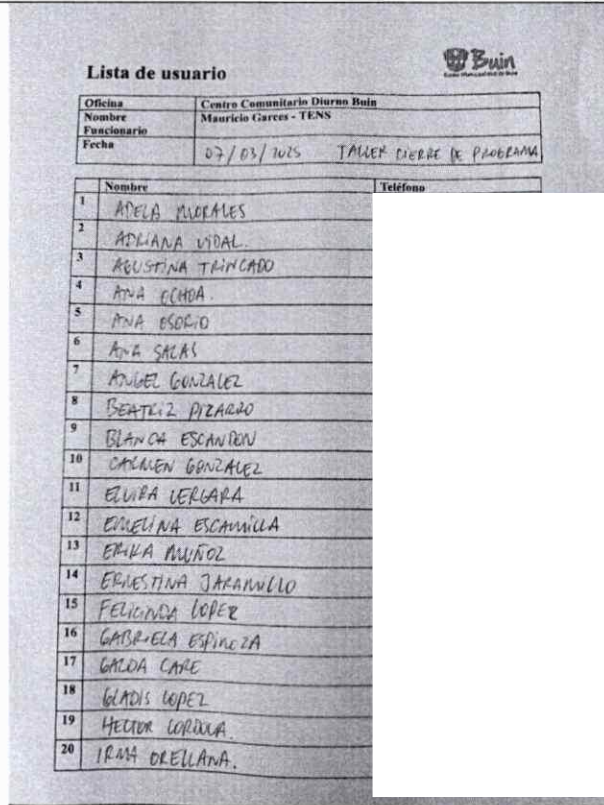 Buin
Lista de usuario
Oficina Centro Comunitario Diurno Buin
Nombre Funcionario Mauricio Garces - TENS
Fecha 07/03/2025 TALLER CIERRE DE PROGRAMA
Nombre Teléfono
1 ADELA MORALES
2 ADRIANA VIDAL.
3 AGUSTINA TRINCADO
4 ANA OCHOA.
5 ANA OSORIO
6 ANA SALAS
7 ANGEL GONZALEZ
8 BEATRIZ PIZARRO
9 BLANCA ESCANDON
10 CARMEN GONZALEZ
11 ELVIRA VERGARA
12 EMELINA ESCAMILLA
13 ERIKA MUÑOZ
14 ERNESTINA JARAMILLO
15 FELICINDA LOPEZ
16 GABRIELA ESPINOZA
17 CARE
18 GLADIS LOPEZ
19 HECTOR CORDOVA.
20 IRMA ORELLANA.